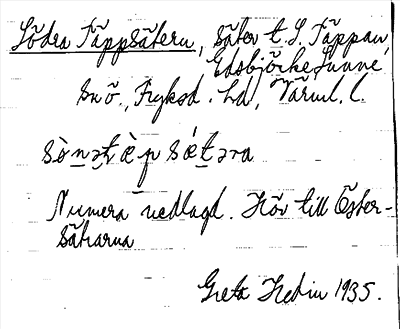 Södra Täppsätern, säter t. S. Täppan,
Edsbjörke Sunne
sn ö., Fryksd. hd, Värml. l.
sö̀nə tæ̀p sǽtəra
Numera nedlagd. Hör till Öster-
sätrarna
Greta Hedin 1935.